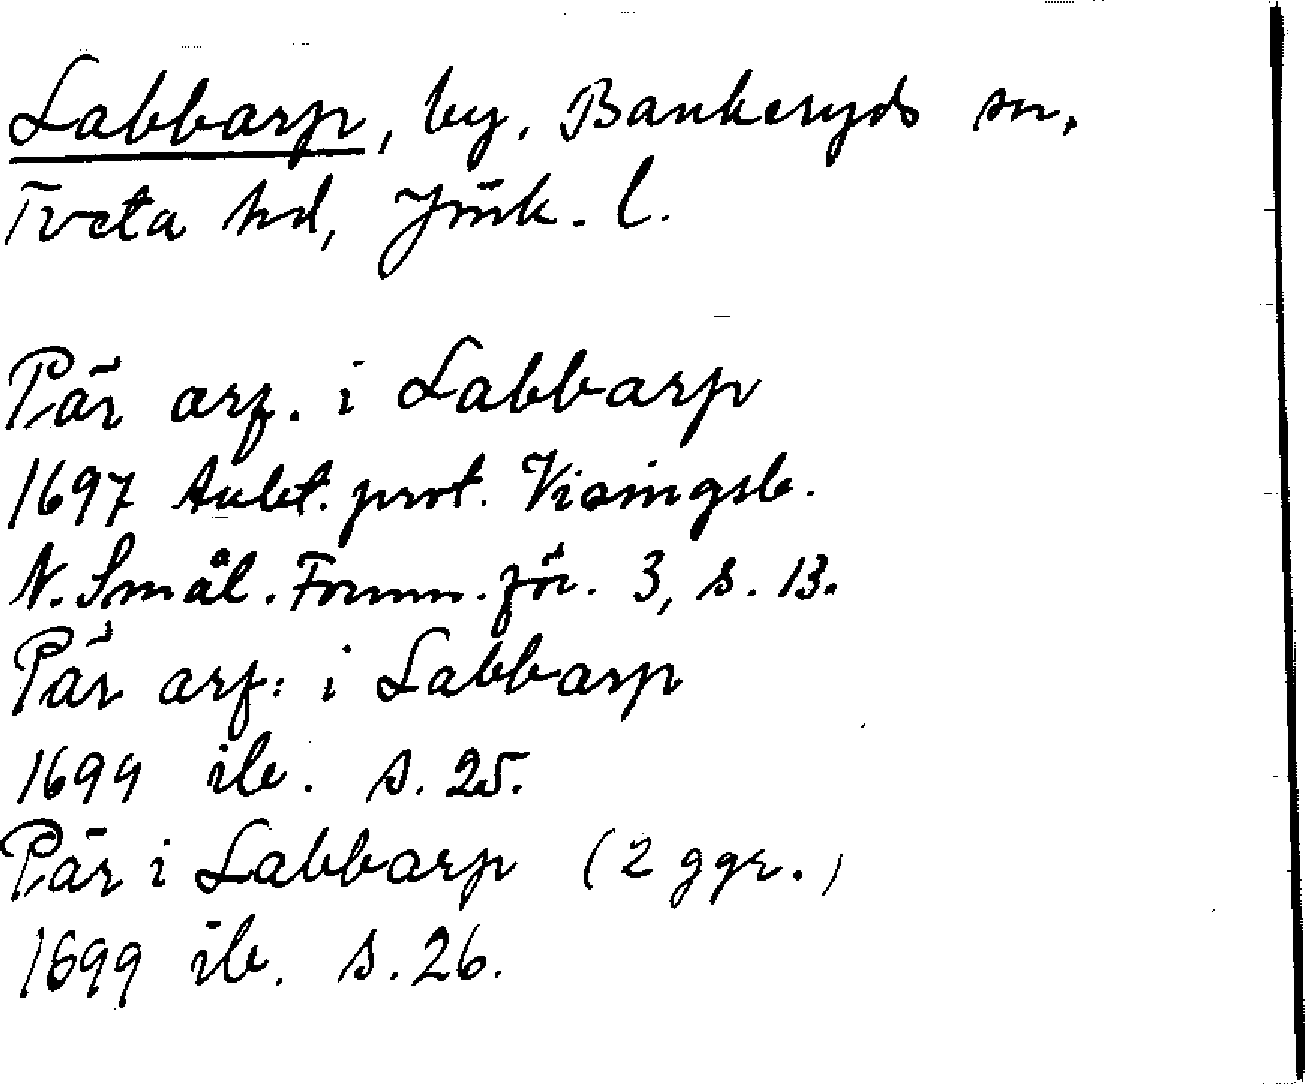 Labbarp, by, Bankeryds sn,
Tveta hd, Jönk. l.
Pär arf. i Labbarp
1697 Aukt. prot. Visingsb.
N. Smål. Fornm. för. 3, s. 13.
Pär arf: i Labbarp
1699 ib. s. 25.
Pär i Labbarp (2 ggr.)
1699 ib. s. 26.